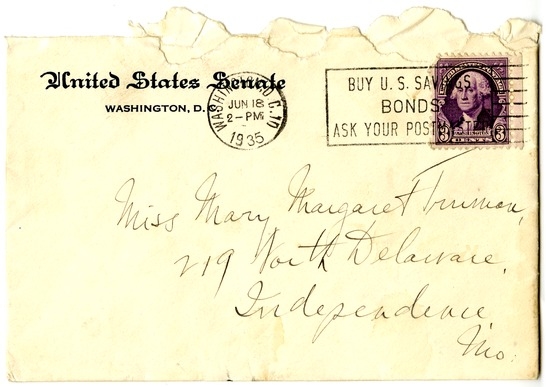 United States Senate
WASHINGTON, D.
WASHINGTON, D.C. 10
JUN 18
2-PM
1935
BUY U.S. SAVINGS
BONDS
ASK YOUR POSTMASTER
3 WASHINGTON 3
Miss Mary Margaret Truman,
219 North Delaware,
Independence
Mo.